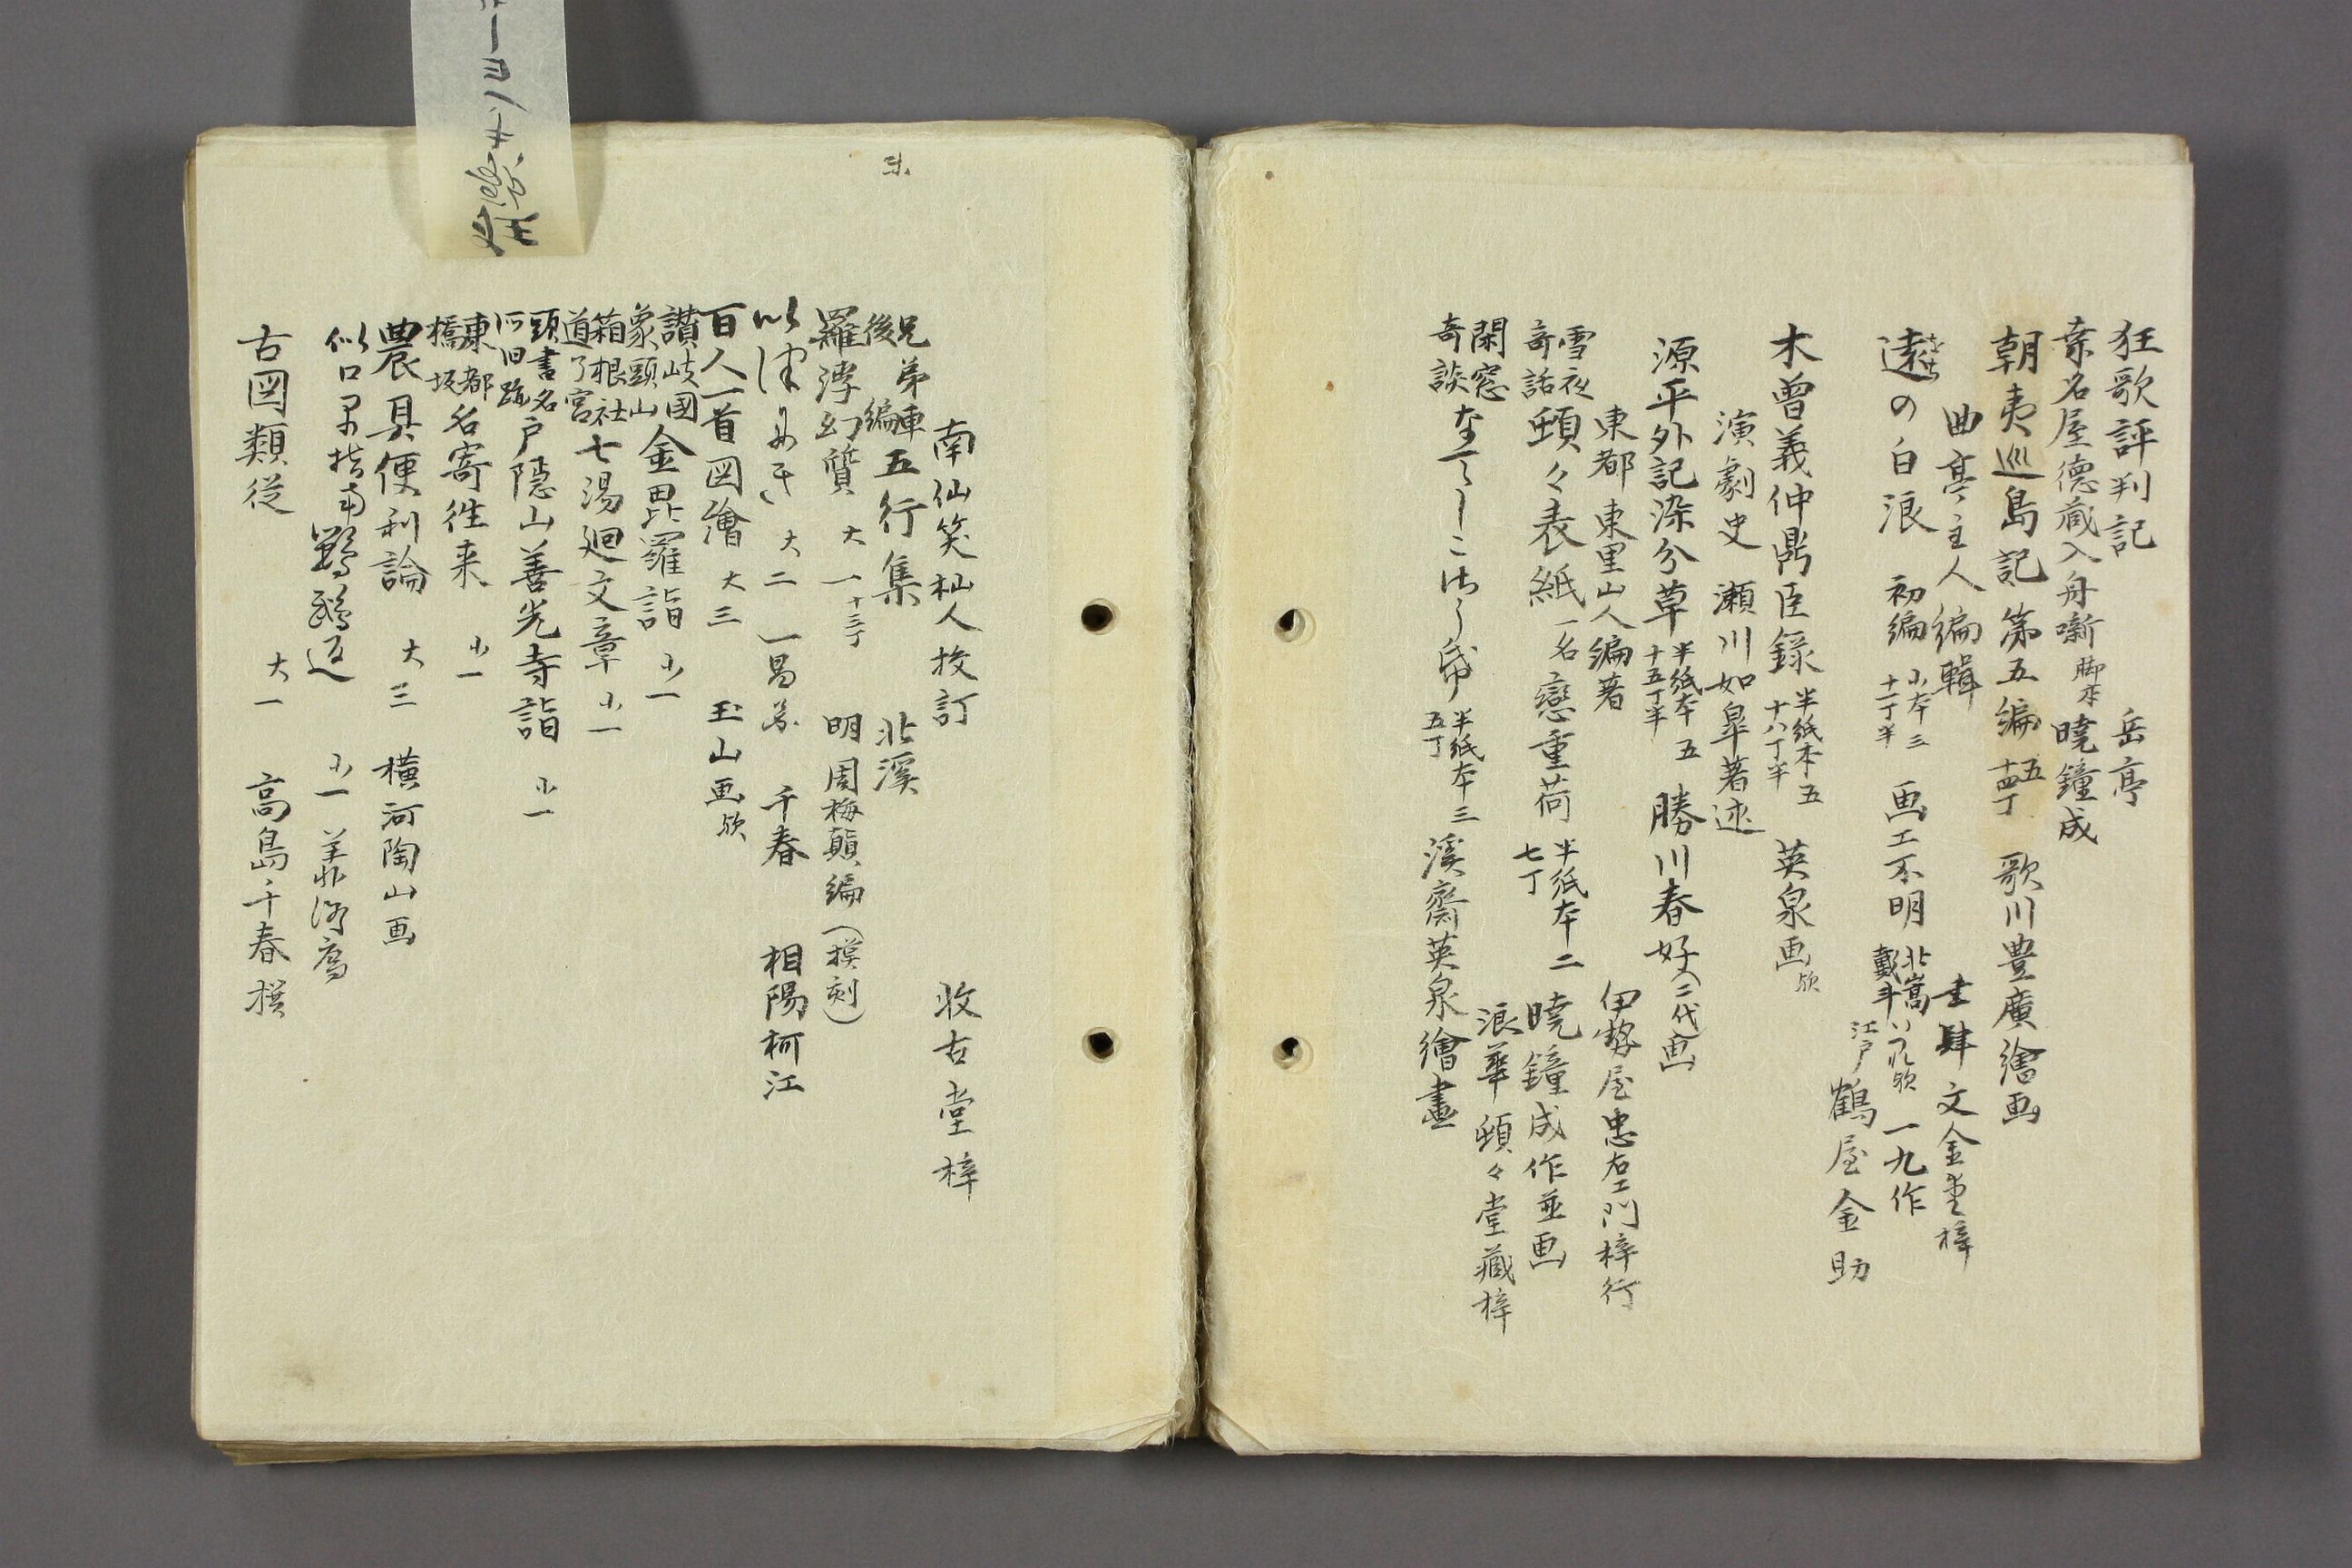 狂歌評判記 岳亭
桒名屋徳蔵入舟噺 脚本 暁鐘成
朝夷巡島記 第五編 五 十四丁 歌川豊廣繪画
曲亭主人編輯 書肆文金堂梓
遠の白浪 初編 小本三 十一丁半 画工不明 北嵩 戴斗 いづれ歟 一九作
江戸 鶴屋金助
木曽義仲鼎臣録 半紙本五 十八丁半 英泉画歟
演劇史 瀬川如皐著述
源平外記染分草 半紙本五 十五丁半 勝川春好(二代画)
東都東里山人編著 伊勢屋忠右エ門梓行
雪夜奇話 頓々表紙 一名戀重荷 半紙本二 七丁 暁鐘成作並画
浪華 頓々堂藏梓
閑窓奇談 半紙本三 五丁 溪齋英泉繪畫
南仙笑杣人挍訂 收古堂梓
兄弟車後編 五行集 北溪
羅浮幻質 大一 十三丁 明 周梅顛編(摸刻)
大二 千春 相陽柯江
百人一首図繪 大三 玉山画歟
讃岐國象頭山 金毘羅詣 小一
箱根社道了宮 七湯廻文章 小一
頭書名所旧跡 戸隠山善光寺詣 小一
東都橋坂 名寄徃来 小一
農具便利論 大三 横河陶山画
鸚鵡返 小一
古図類従 大一 高島千春撰